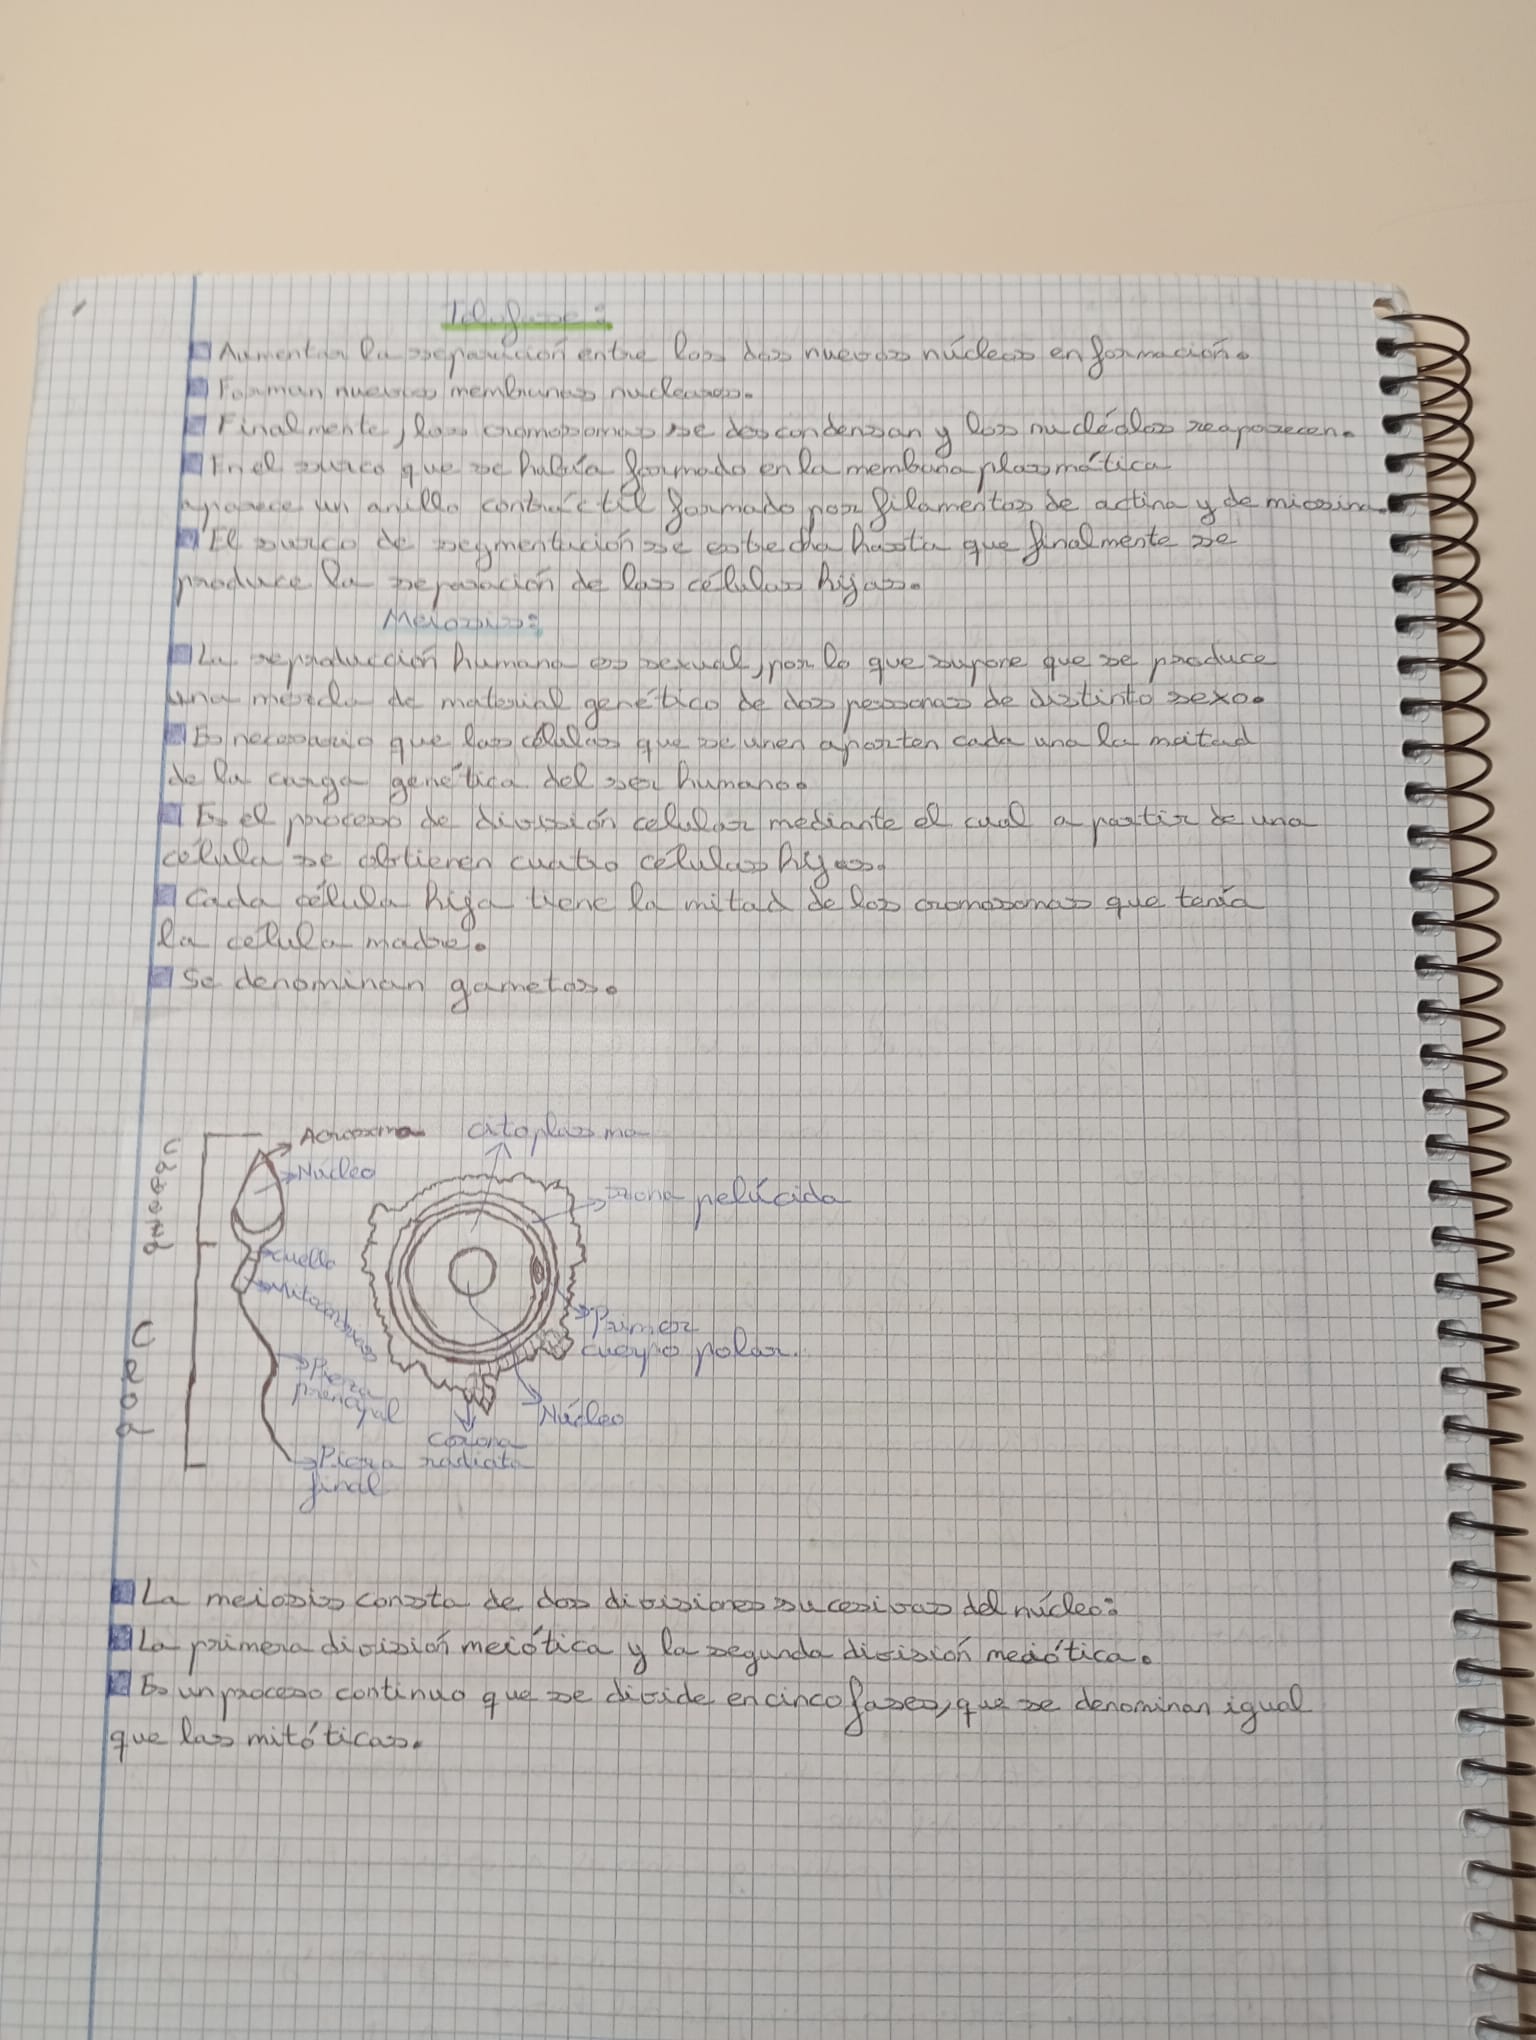 Telofase:
Aumentan la separación entre los dos nuevos núcleos en formación.
Forman nuevas membranas nucleares.
Finalmente, los cromosomas se descondensan y los nucléolos reaparecen.
En el surco que se había formado en la membrana plasmática
aparece un anillo contráctil formado por filamentos de actina y de miosina.
El surco de segmentación se estrecha hasta que finalmente se
produce la separación de las células hijas.
Meiosis:
La reproducción humana es sexual, por lo que supone que se produce
una mezcla de material genético de dos personas de distinto sexo.
Es necesario que las células que se unen aporten cada una la mitad
de la carga genética del ser humano.
Es el proceso de división celular mediante el cual a partir de una
célula se obtienen cuatro células hijas.
Cada célula hija tiene la mitad de los cromosomas que tenía
la célula madre.
Se denominan gametos.
Acrosoma
Núcleo
cuello
Mitocondrias
Pieza
principal
Pieza
final
Cabeza
Cola
citoplasma
zona pelúcida
Primer
cuerpo polar.
Núcleo
corona
radiata
La meiosis consta de dos divisiones sucesivas del núcleo:
La primera división meiótica y la segunda división meiótica.
Es un proceso continuo que se divide en cinco fases, que se denominan igual
que las mitóticas.